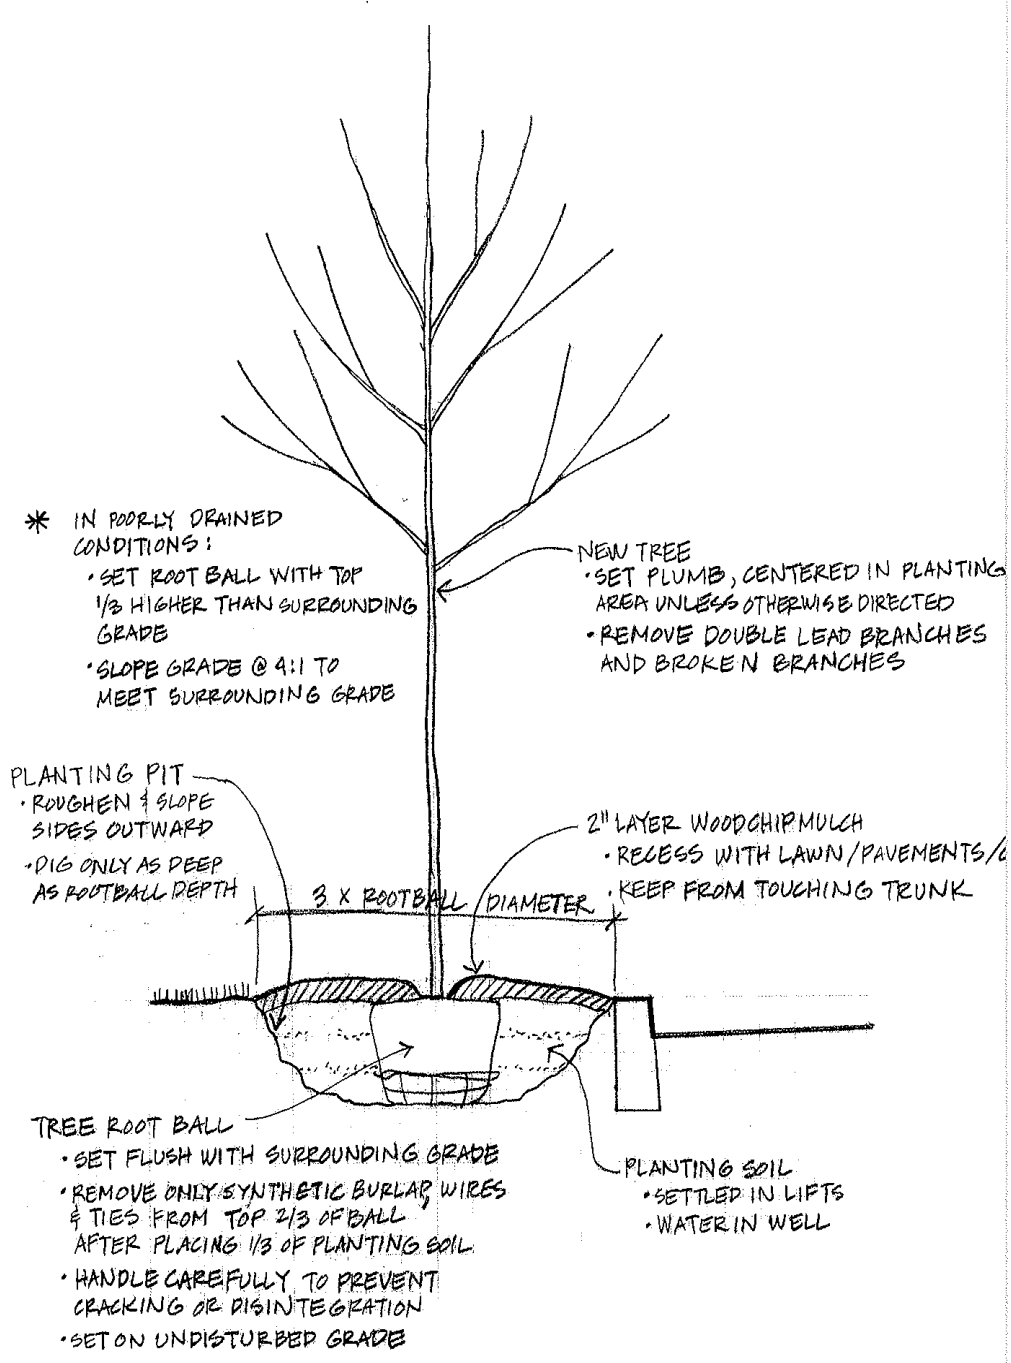 * IN POORLY DRAINED
CONDITIONS:
• SET ROOT BALL WITH TOP
1/3 HIGHER THAN SURROUNDING
GRADE
• SLOPE GRADE @ 4:1 TO
MEET SURROUNDING GRADE
NEW TREE
• SET PLUMB, CENTERED IN PLANTING
AREA UNLESS OTHERWISE DIRECTED
• REMOVE DOUBLE LEAD BRANCHES
AND BROKEN BRANCHES
PLANTING PIT
• ROUGHEN & SLOPE
SIDES OUTWARD
• DIG ONLY AS DEEP
AS ROOTBALL DEPTH
2" LAYER WOODCHIP MULCH
• RECESS WITH LAWN/PAVEMENTS/
• KEEP FROM TOUCHING TRUNK
3 X ROOTBALL DIAMETER
TREE ROOT BALL
• SET FLUSH WITH SURROUNDING GRADE
• REMOVE ONLY SYNTHETIC BURLAP, WIRES
& TIES FROM TOP 2/3 OF BALL
AFTER PLACING 1/3 OF PLANTING SOIL
• HANDLE CAREFULLY TO PREVENT
CRACKING OR DISINTEGRATION
• SET ON UNDISTURBED GRADE
PLANTING SOIL
• SETTLED IN LIFTS
• WATER IN WELL